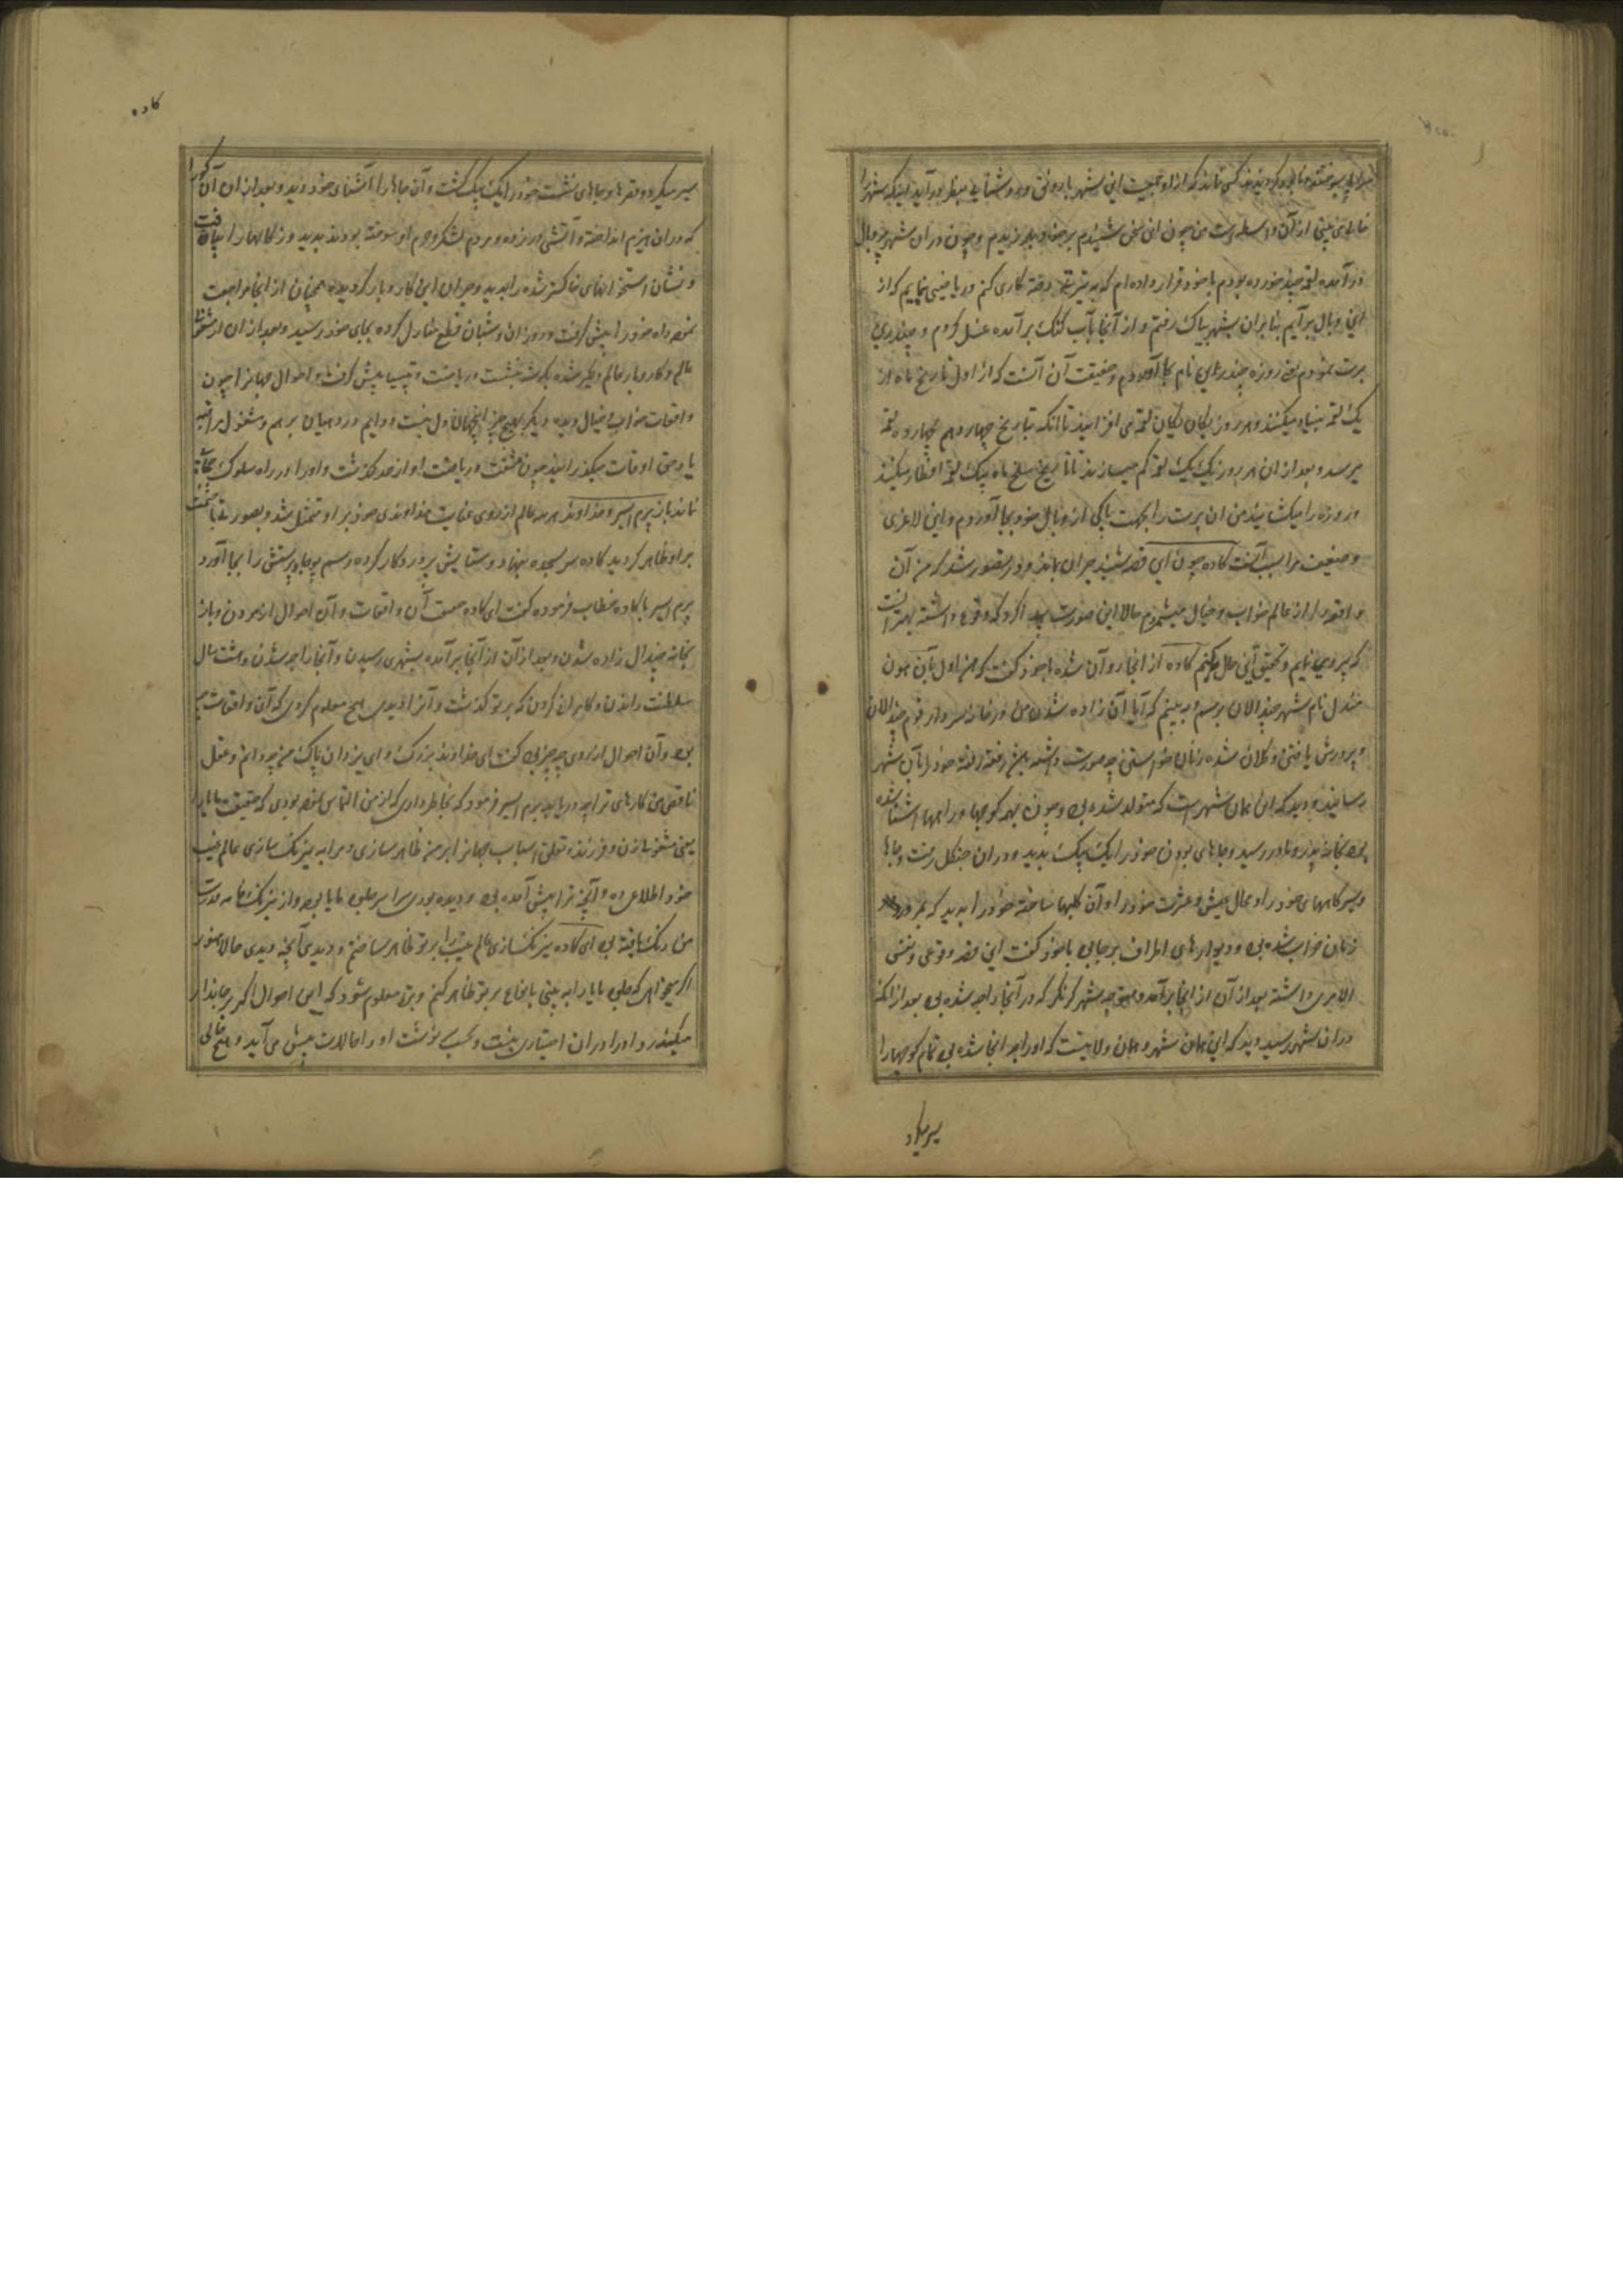 خالی می بینی از آن واسطه است من چون این سخن شنیدم بر خود بلرزیدم و چون دران شهر
در آمده لقمه چند خورده بودم با خود قرار داده ام که به تیرتها رفته کاری کنم و ریاضتی نمایم که از
این وبال بر آیم بنا بران بشهر پیاک رفتم و از آنجا بآب گنگ بر آمده غسل کردم و چندراین
برت نمودم یعنی روزه چندراین نام بجا آوردم و حقیقت آن آنست که از اول تاریخ ماه از
یک لقمه بنیاد میکنند و هر روز یکان یکان لقمه می افزایند تا آنکه بتاریخ چهاردهم چهارده لقمه
میرسد و بعد از ان هر روز یک یک لقمه کم میسازند تا تاریخ سلخ ماه بیک لقمه افطار میکنند
و روزه را میکشایند من این برت را بجهت پاکی از وبال خود بجا آوردم و این لاغری
و ضعیف مرا سبب آنست کاده چون این قصه شنید حیران بماند و در تصور شد که من آن
واقعه را از عالم خواب و خیال میشمردم حالا این صورت پیدا کرد که وقوع داشته بهتر آنست
که پیروی نمایم و تحقیق این حال بکنم کاده از انجا روان شده با خود گفت که من اول بآن هون
مندل نام شهر چندالان برسم و به بینم که آیا آن زاده شدن من در خانه سردار قوم چندالان
و پرورش یافتن و کلان شده زنان خواستن چه صورت داشته پیش رفته رفته خود را بآن شهر
رسانید و دید که این همان شهر است که متولد شده بود و چون بهمه کوچها و راهها آشنا شده
بود بخانه پدر و مادر رسید و جاهای بودن خود را یک بیک بدید و دران جنگل رفت و جاها
و سیرگاههای خود را و محال عیش و عشرت خود را و آن کلبها ساخته خود را بدید که بمرور
زمان خراب شده بود و دیوارهای اطراف بر جای با خود گفت این قصه وقوعی و نفس
الامری داشته بعد از آن از انجا بر آمده متوجه شهر کرنکر که در آنجا راجه شده بود بعد از آنکه
دران شهر رسید دید که این همان شهر و همان ولایت است که او راجه انجا شده بود تمام کوچها را
سیر میکرد
کاده
سیر میکرد و قصرها و جاهای نشست خود را یک بیک گشت و آن جاها را آشنای خود دید و بعد از ان آن گو را
که دران هیزم انداخته و آتش در زده و مردم لشکر و حرم او سوخته بودند بدید و زگالها را بیافت
و نشان استخوانهای خاکستر شده را بدید و حیران این کار و بار گردید همچنان از انجا مراجعت
نموده راه خود را پیش گرفت و روزان و شبان قطع منازل کرده بجای خود رسید و بعد از ان از
عالم و کار و بار عالم دلگیر شده بگوشه بنشست و ریاضت و تپسیا پیش گرفت و احوال جهان را چون
واقعات خواب و خیال دیده دیگر بهیچ چیز این جهان دل نبست و دایم در دهیان برهم و مشغول مراقبه
یاد حق اوقات میگذرانید چون مشقت و ریاضت او از حد گذشت و او را در راه سلوک
ماند باز پرم ایسر و خداوند هر سه عالم از روی عنایت خداوندی خود بر او متمثل شد و بصورت
بر او ظاهر گردید کاده سر بسجده بنهاد و ستایش پروردگار کرده رسم پوجا و پرستش را بجا آورد
پرم ایسر با کاده خطاب فرموده گفت ای کاده صفت آن واقعات و آن احوال از مردن و باز
بخانه چندال زاده شدن و بعد از آن از آنجا بر آمده بشهری رسیدن و آنجا راجه شدن و هشت سال
سلطنت راندن و کامرانی کردن که بر تو گذشت و آن را دیدی هیچ معلوم کردی که آن واقعات چه
بود و آن احوال از روی چه چیز بود گفت ای خداوند بزرگ و ای یزدان پاک من چه دانم و عقل
ناقص من کارهای ترا چه دریابد پرم ایسر فرمود که بخاطر داری که از من التماس نموده بودی که حقیقت مایا را
یعنی مشغولی زن و فرزند و تعلق اسباب جهان را بر من ظاهر سازی و مرا به نیرنگ سازی عالم غیب
خود اطلاع ده و آنچه ترا پیش آمده بود و دیده بودی سراسر جلوه مایا بود و از نیرنگ خانه قدرت
من رنگ یافته بود ای کاده نیرنگ سازی عالم غیب را بر تو ظاهر ساختم و دیدی آنچه دیدی حالا هنوز
اگر میخواهی که جلوه مایا را به بینی بانواع بر تو ظاهر کنم و بتو معلوم شود که این احوال اگر بر جاندار
میگذرد او را دران اختیاری نیست و بحسب نوشت او را حالات پیش می آید و هیچ حالی